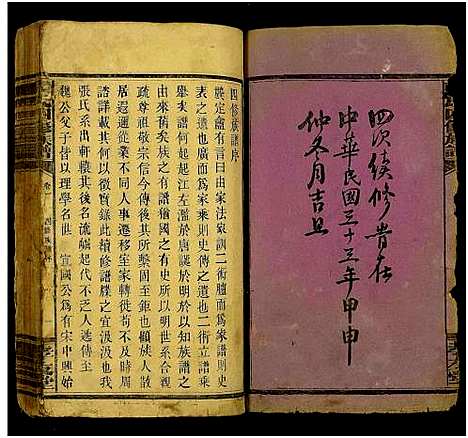 四次續修貴在
中華民國三十三年甲申
仲冬月吉旦
四修族譜序
牒定盦有言曰由家法家訓二術臚而為家譜則史
表之遺也廣而為家乘則史傳之遺也二術立譜乘
舉矣譜何起起江左濫於唐誕於明於以知族譜之
由來舊矣族之有譜猶國之有史所以明世系合親
疏尊祖敬宗信乎其所繫固至鉅也顧族人散
居遐邇從業不同人事遷移室家轉徙苟不及時纂
譜詳載其何以徵實錄此續修譜牒之宜汲汲也
張氏系出軒轅其後名流輩起代不乏人遞傳至
魏公父子皆以理學名世 宣國公為有宋中興始